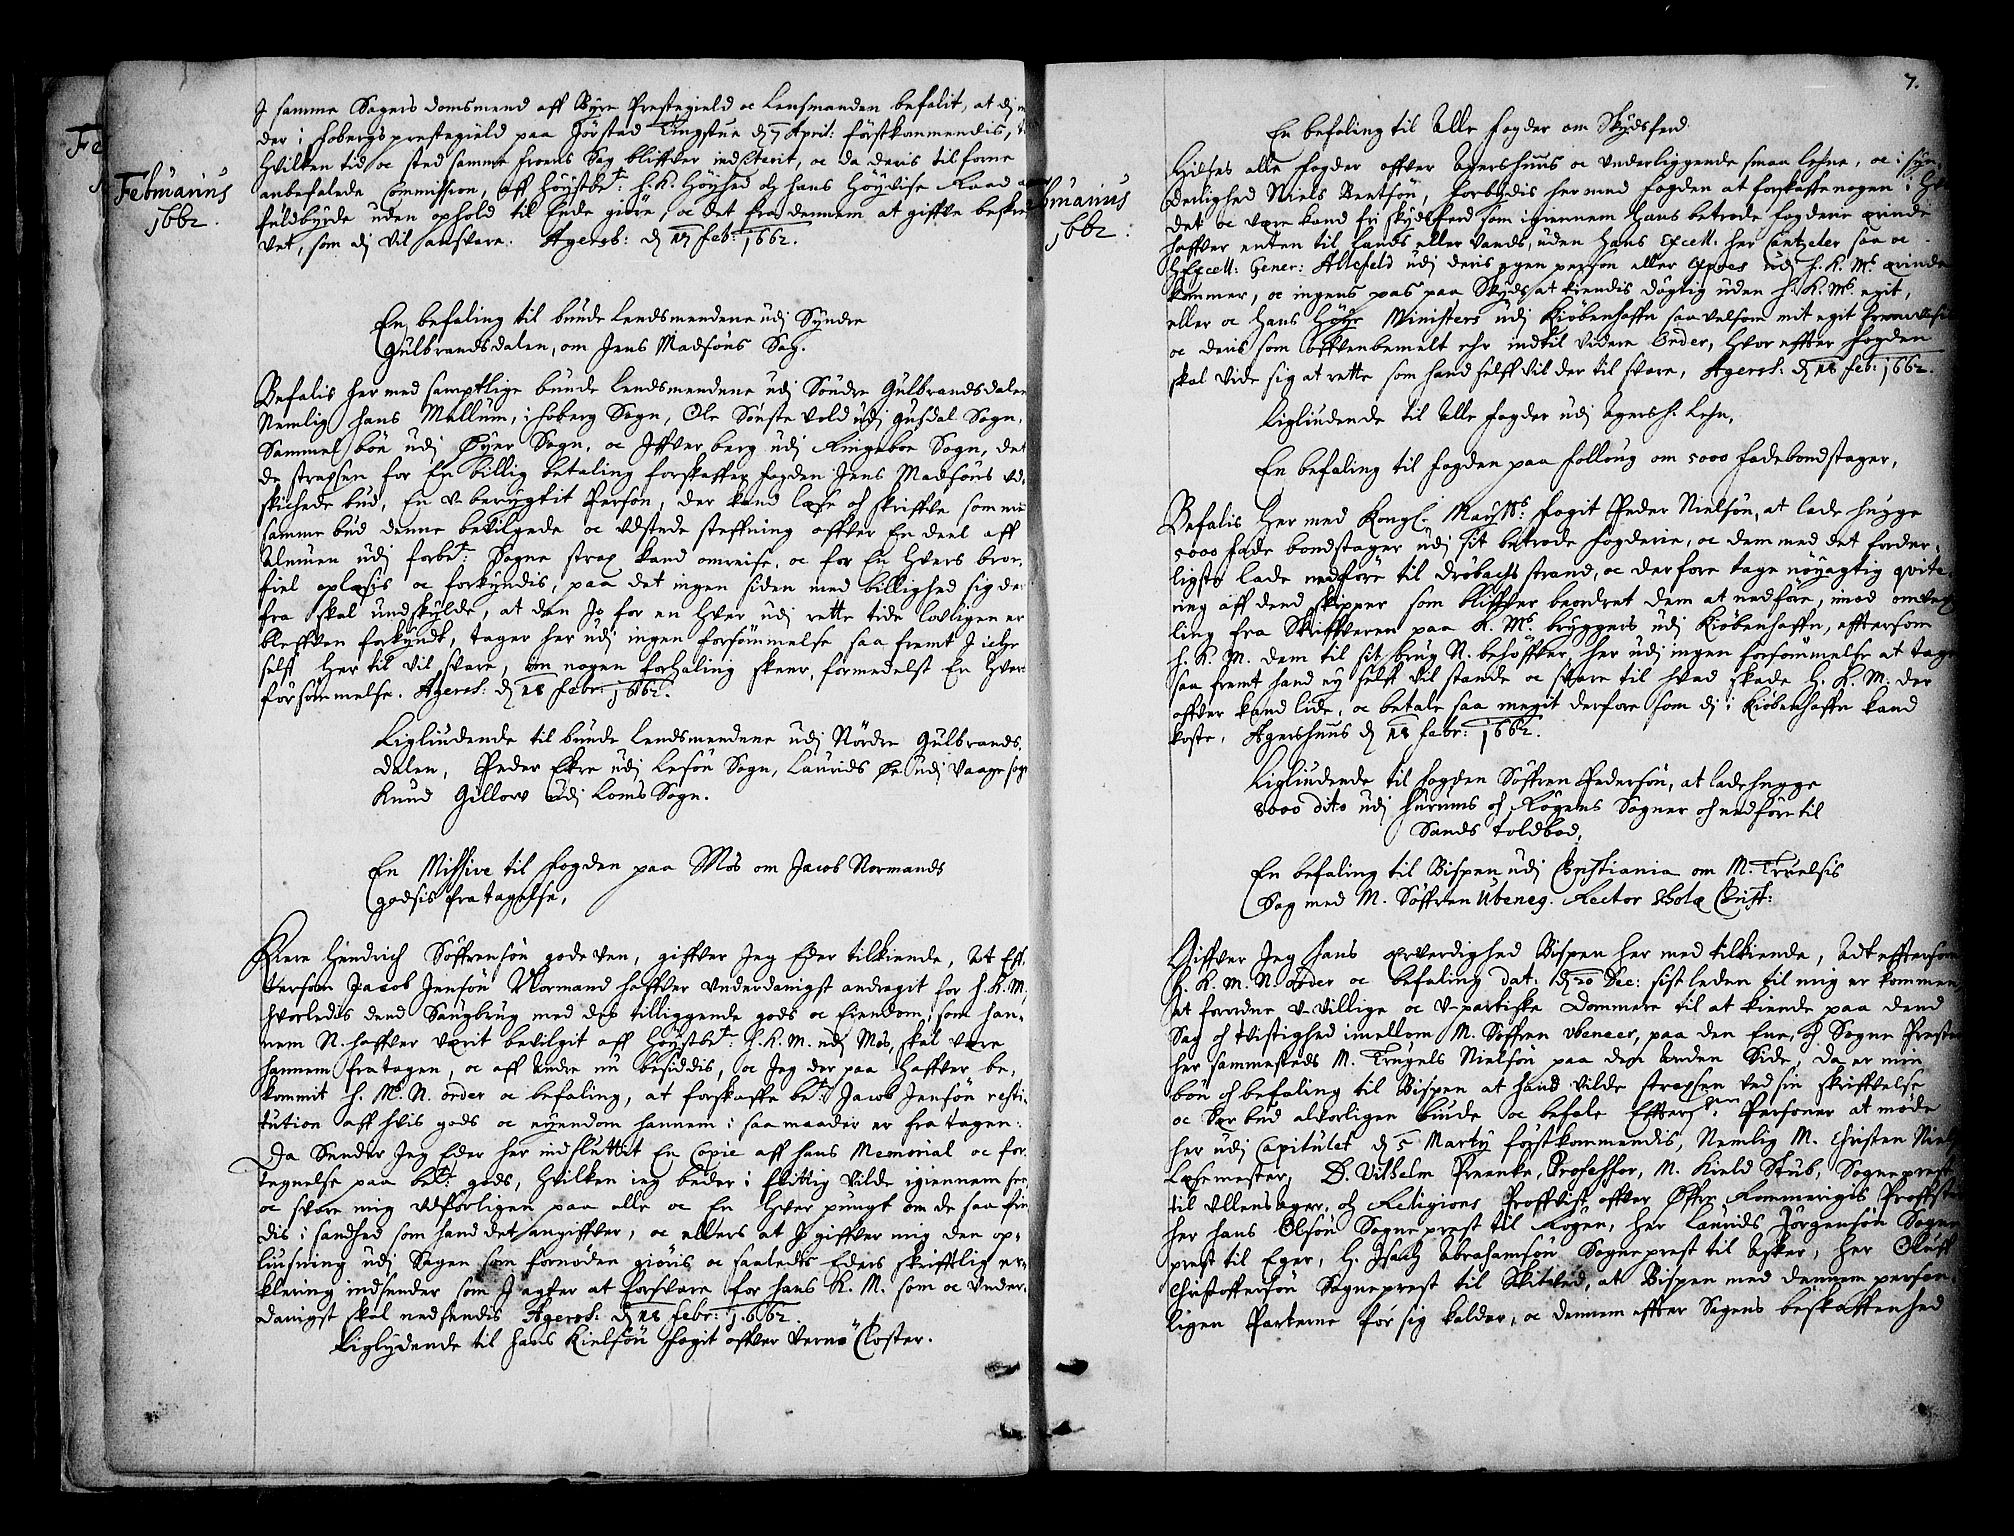 Februarius
1662.
I samme Sagers domsmend aff Øyre Prestegield oc Lensmanden befalit, at di m
der i Foberg prestegield paa Jörstad Tingstue d 7 April: förstkommendis,
hvilken tid oc sted samme Froens Sag bliffver indsterit, oc da deris tilforne
anbefalede Commission, aff Höystbet: H. K. Höyhed och hans Höyvise Raad
fuldbyrde uden ophold til Ende giöre, oc det fra dennem at giffve beskre
vet, som di vil ansvare. Agersh: d 17 feb: 1662.
En befaling til bunde Lendsmendene udj Syndre
Gulbrandsdalen, om Jens Madsöns Sag.
Befalis her med samptlige bunde lendsmendene udj Söndre Gulbrandsdalen
Nemlig hans Mellum, i Foberg Sogn, Ole Sönstevold udj Gusdal Sogn,
Sammel böe udj Øyer Sogn, oc Iffver berg udj Ringeboe Sogn, det
de strapsen for En billig betaling forskaffer fogden Jens Madsöns ud,
skickede bud, En v-berygtit Person, der kand læse och skriffve som m
samme bud denne bevilgede oc udstede steffning offver En deel aff
Almuen udj forbet: Sogne strax kand omreise, oc for En hvers bror,
fiel oplæsis oc forkyndis, paa det ingen siden med billighed sig de
fra skal undskylde, at den Jo for en hver udj rette tide lovligen er
bleffven forkyndt, tager her udj ingen forsömmelse saa fremt I icke
self her til vil svare, om nogen forhaling skeer, formedelst En hver
forsömmelse. Agersh: d 18 febr: 1662.
Liglindende til bunde lendsmendene udj Nördre Gulbrands,
dalen, Peder Ekre udj Lesöe Sogn, Laurids Öe udj Vaage sogn
Knud Gillow udj Loms Sogn.
En Missive til fogden paa Mos om Jacob Normands
godsis fratagelse,
Kiere Hendrich Söffrensön gode ven, giffver Jeg Eder tilkiende, At Eff,
tersom Jacob Jensön Normand haffver underdanigst andragit for H. K. M,
hvorledis dend Saugbrug med dis tilliggende gods oc Eiendom, som han,
nem N. haffver verit bevilgit aff Höystbet: H. K. M. udj Mos, skal være
hannem fratagen, oc aff Andre nu besiddis, oc Jeg der paa haffver be,
kommit H. Ms. N. order oc befaling, at forskaffe bet: Jacob Jensön resti,
tution aff hvis gods oc eyendom hannem i saa maader er fratagen:
Da Sender Jeg Eder her indsluttit En Copie aff hans Memorial oc for
tegnelse paa bet: gods, hvilken ieg beder i flittig vilde igiennem see,
oc svare mig udförligen paa alle oc En hver pungt om de saa fin
dis i sandhed som hand det angiffver, oc ellers at I giffver mig den op,
liusning udj Sagen som fornöden giöris oc saaledis Eders skrifftlig er,
klering indsender som I agter at forsvare for hans K. M. som oc under,
danigst skal nedsendis Agersh: d 18 febr: 1662.
Liglydende til Hans Kielsön fogit offver Vernö Closter.
7.
bruarius
1662.
En befaling til Alle fogder om Skydsferd
Hilses alle fogder offver Agershuus oc underliggende smaa lehne, oc i syn,
derlighed Niels Bentsön, forbydis her med fogden at forskaffe nogen i
det oc vere kand fri skydsferd som igiennem hans betrode fogderie ærinde
haffver enten til lands eller vands, uden hans Excell. her Cantzeler saa oc
H Excell: Gener: Allefeld udj deris egen person eller expres udj H. K. Ms. ærinde
kommer, oc ingens pas paa Skyds at kiendis dögtig uden H. K. Ms. egit,
eller oc hans höye Ministers udj Kiöbenhaffn saavelsom mit egit
oc deris som offvenbemelt ehr indtil videre Order, hvor effter fogden
skal vide sig at rette som hand selff vil der til svare, Agersh: d 18 feb: 1662.
Liglindende til Alle fogder udj Agersh. Lehn,
En befaling til fogden paa Folloug om 5000 fadebondstager,
Befalis Her med Kongl: Maysts: fogit Peder Nielsön, at lade hugge
5000 fade bondstager udj sit betrode fogderie, oc dem med det forder,
ligste lade nedföre til dröbachs strand, oc derfore tage nöyagtig qvite,
ring aff dend skipper som bliffver beordret dem at nedföre, imod omvex
ling fra Skriffveren paa K. Ms. bryggers udj Kiöbenhaffn, efftersom
H. K. M. dem til sit brug N. behöffver, her udj ingen forsömmelse at tage
saa fremt hand ey selff vil stande oc svare til hvad skade H. K. M. der
offver kand lide, oc betale saa megit derfore som di i Kiöbenhaffn kand
koste, Agershuus d 18 febr: 1662.
Liglindende til fogden Söffren Pedersön, at lade hugge
8000 dito udj Hurums och Rögens Sogner och nedföre til
Sands toldbod,
En befaling til Bispen udj Christiania om M. Truelsis
Sag med M. Söffren Ubeneg. Rector Scholæ Christ:
Giffver Jeg hans Erverdighed Bispen her med tilkiende, At efftersom
H. K. M. N. order oc befaling dat: d 20 Dec: sistleden til mig er kommen
at forordne v-villige oc v-partiske Dommere til at kiende paa dend
Sag och tvistighed imellom M. Söffren Ubeneer, paa den Ene, och Sogne Presten
her sammesteds M. Trugels Nielsön paa den Anden Side, da er min
bön och befaling til Bispen at hand vilde strapsen ved sin skriffvelse
oc Sær bud alvorligen biude oc befale Effterschr: Personer at möde
her udj Capitulet d 5 Martij förstkommendis, Nemlig M. Christen Niels
Læsemester, D. Vilhelm Frænke, Professor, M. Kield Stub, Sogneprest
til Ullensager, och Religions Proffvist offver Öffre Rommerigis Proffstie
her hans Olsön Sogneprest til Rögen, her Laurids Jörgensön Sogne
prest til Eger, H. Isach Abrahamsön Sogneprest til Asker, her Oluff
Christoffersön Sogneprest til Skitved, at Bispen med dennem person,
ligen Parterne for sig kalder, oc dennem effter Sagens beskaffenhed